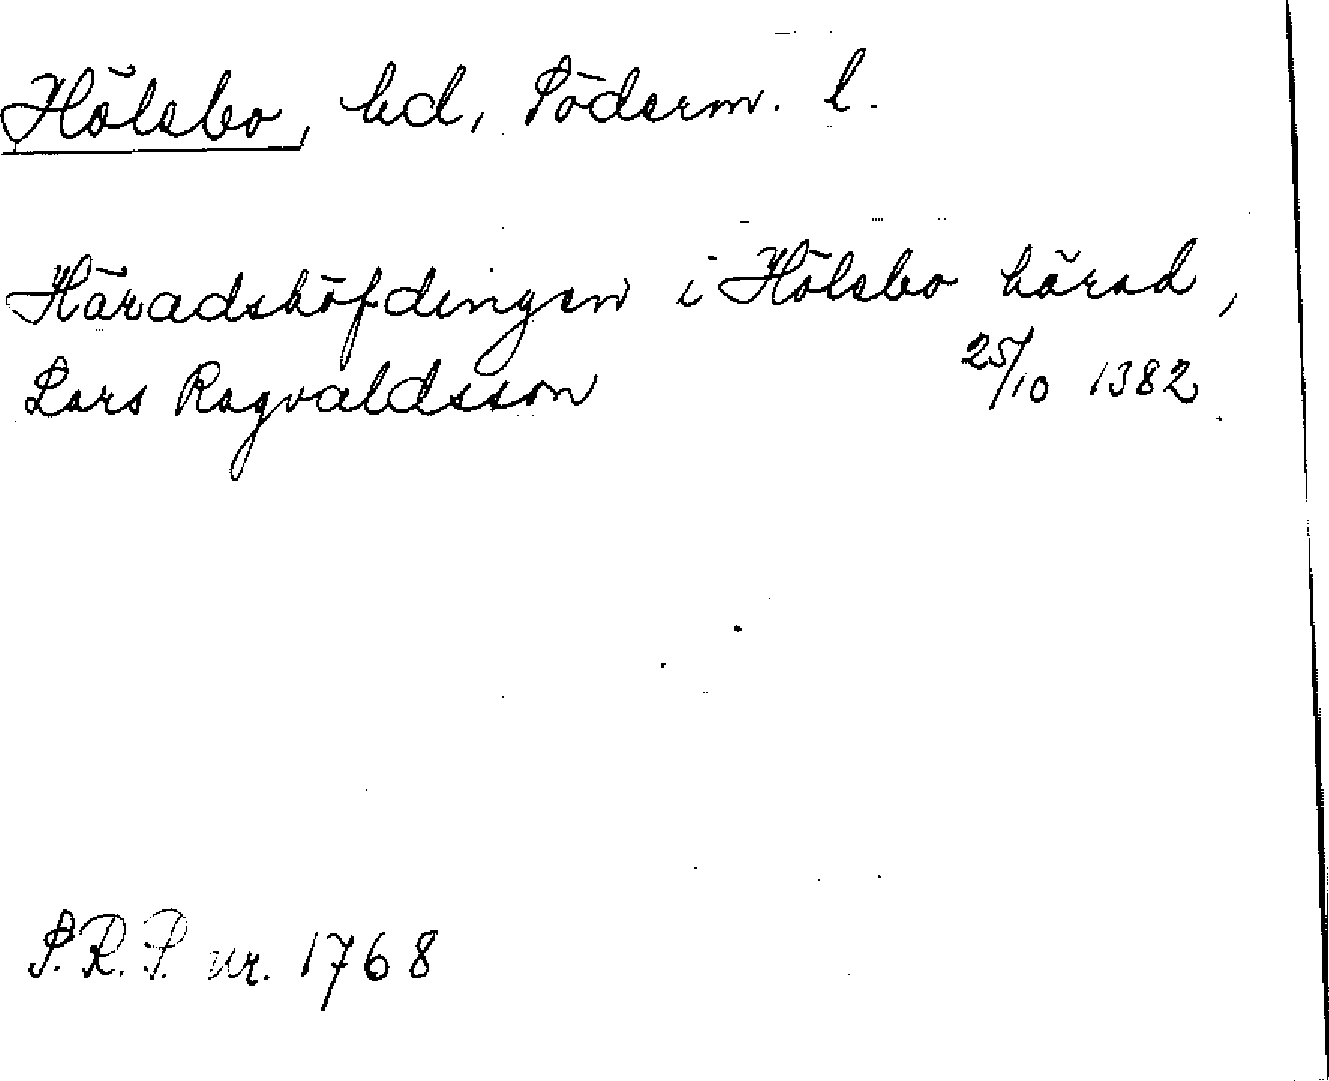 Hölebo, hd, Söderm. l.
Häradshöfdingen i Hölebo härad,
Lars Ragvaldsson 25/10 1382
S.R.P. nr. 1768